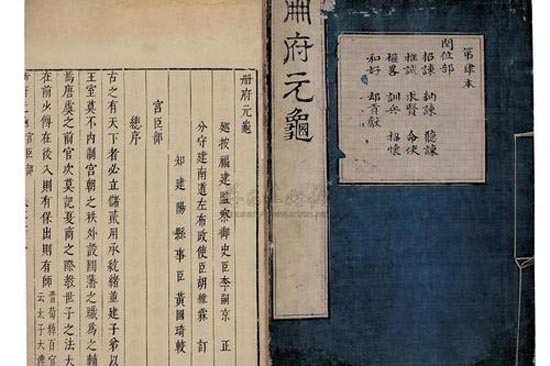 冊府元龜
第肆本
閏位部
招諫 納諫 聽諫
推誠 求賢 命使
權畧 訓兵 招懷
和好 却貢獻
册府元龜
廵按福建監察御史臣李嗣京 正
分守建南道左布政使臣胡維霖 訂
知建陽縣事臣黃國琦較
宮臣部
總序
古之有天下者必立儲貳用承統緒並建子弟以
王室莫不内制宮朝之秩外設國藩之職爲之輔
焉唐虞之前官次莫記夏商之際教世子之法大
在前少傅在後入則有保出則有師